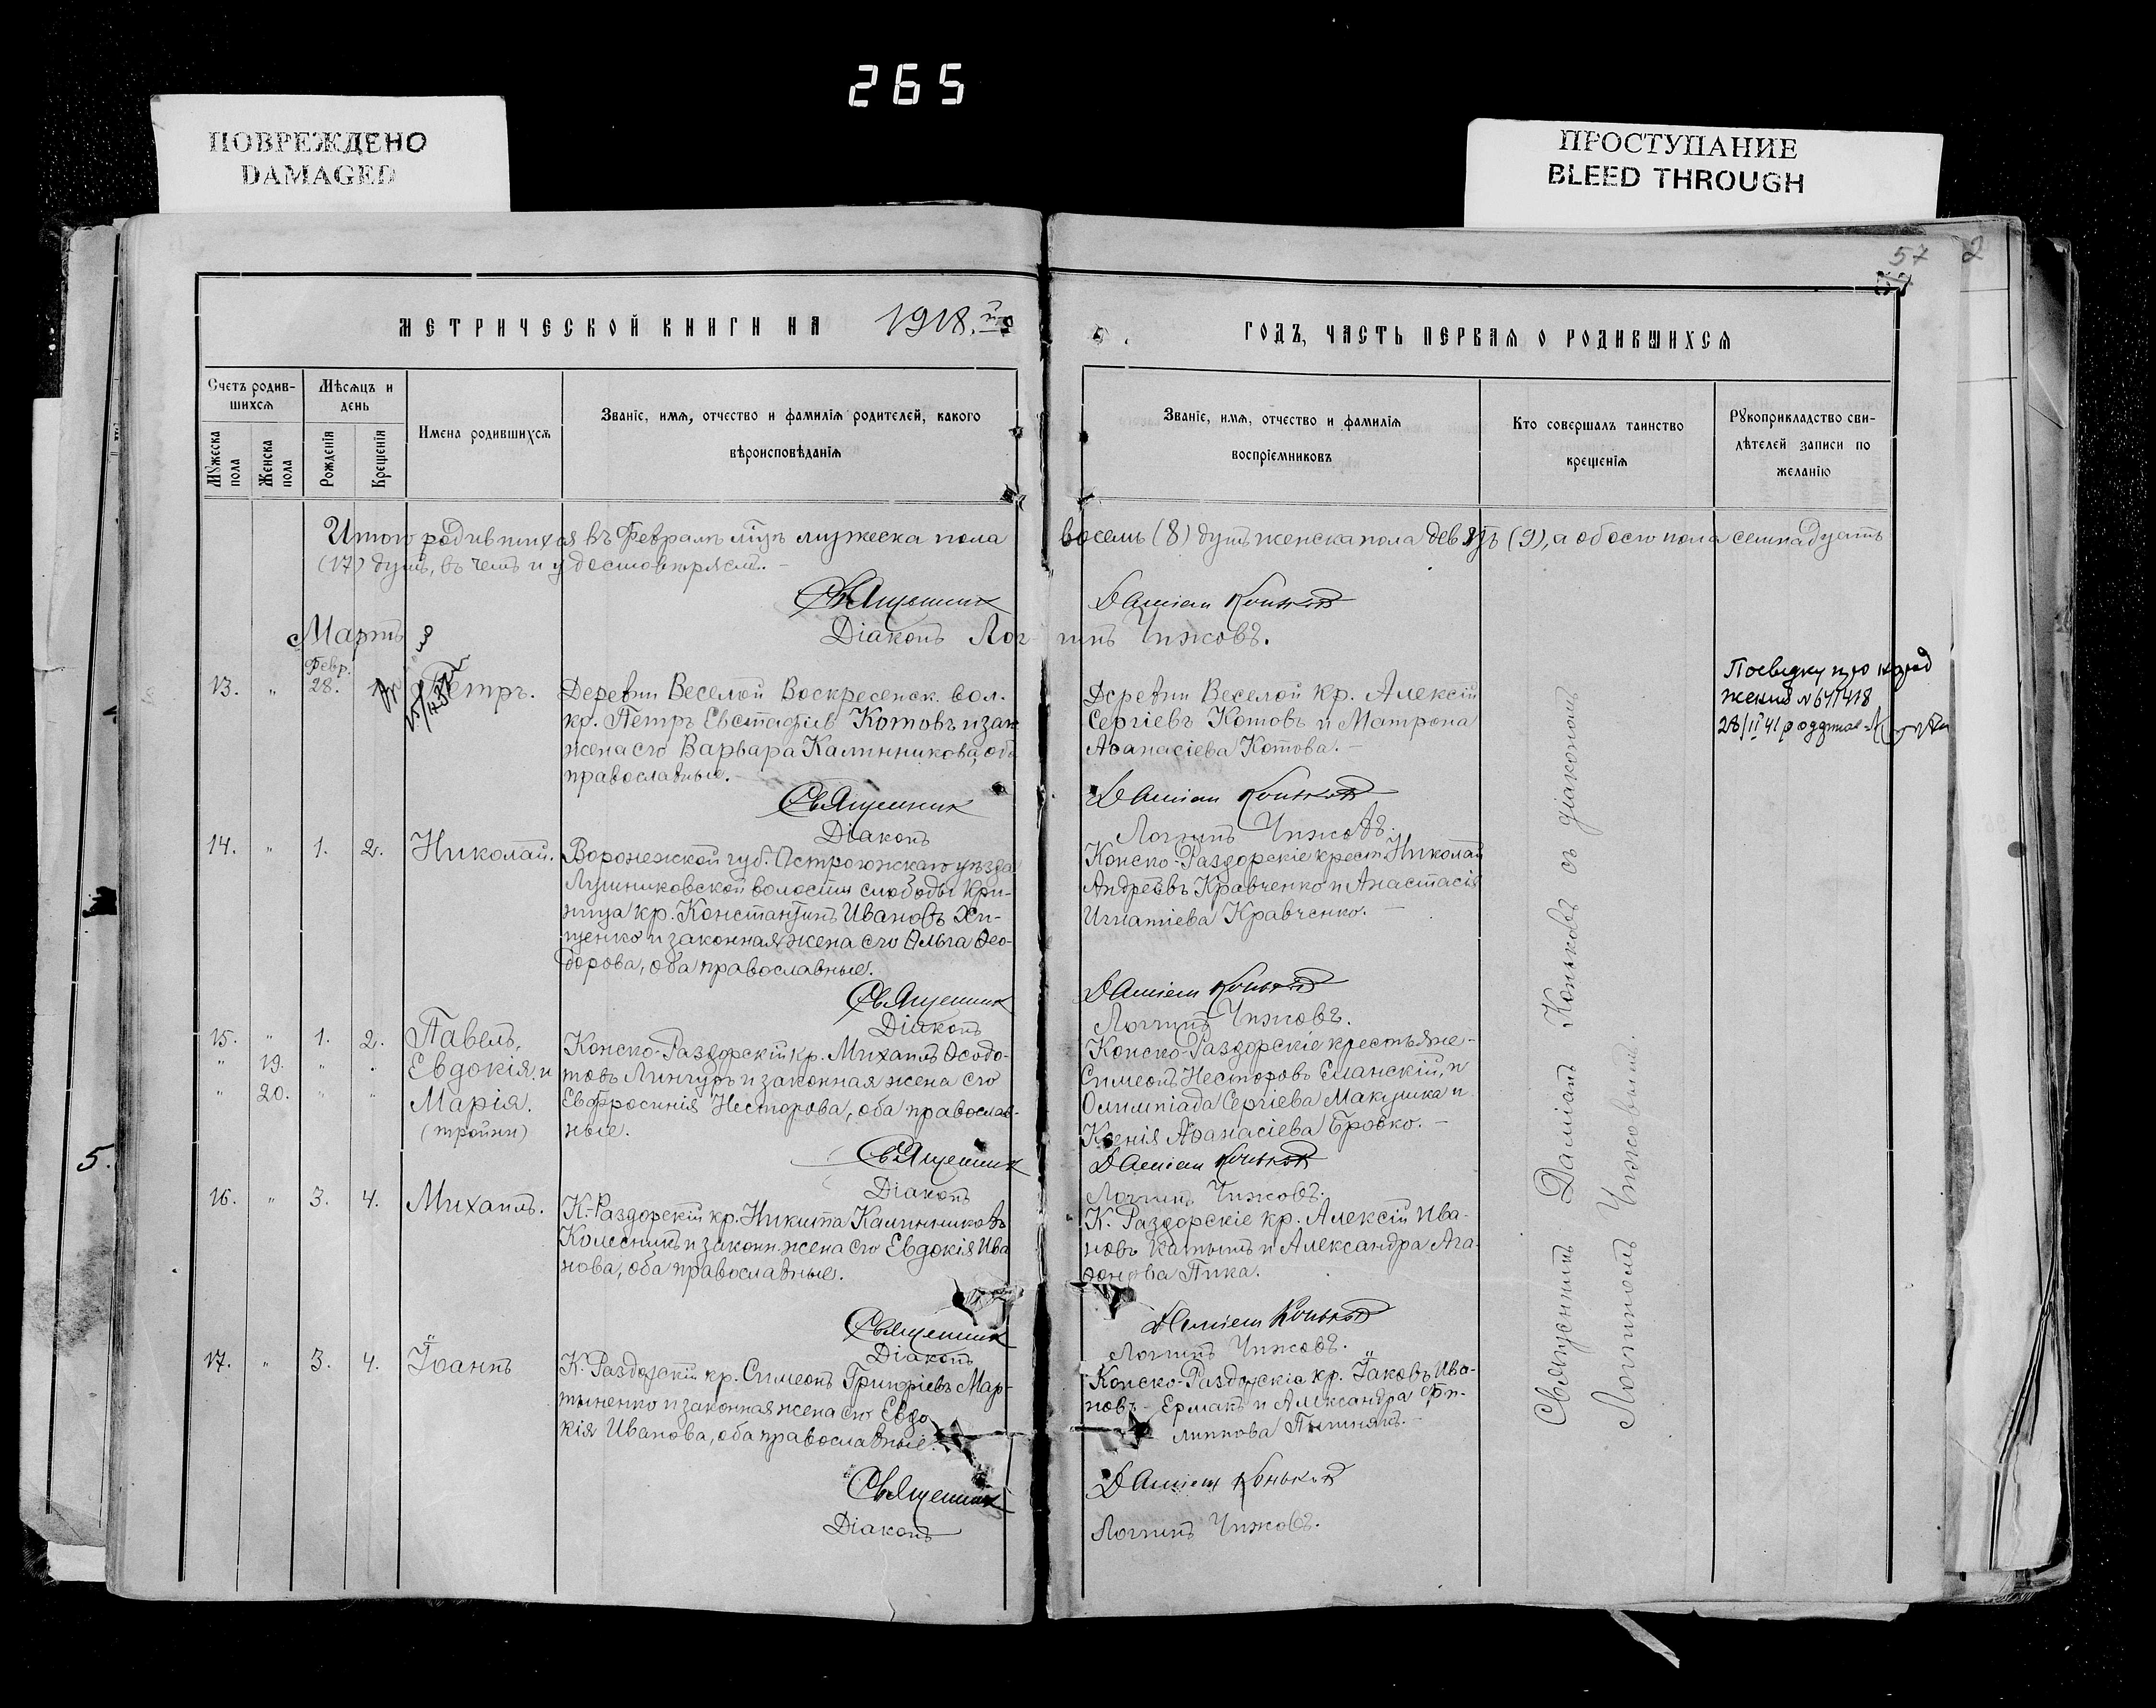 265
ПОВРЕЖДЕНО
DAMAGED
ПРОСТУПАНИЕ
BLEED THROUGH
57 2
57
МЕТРИЧЕСКОЙ КНИГИ НА 1918.
ГОДЪ, ЧАСТЬ ПЕРВАЯ О РОДИВШИХСЯ
Счетъ родив-
шихся
Мѣсяцъ и
день
Мужеска пола
Женска пола
Рожденія
Крещенія
Имена родившихся
Званіе, имя, отчество и фамилія родителей, какого
вѣроисповѣданія
Званіе, имя, отчество и фамилія
воспріемниковъ
Кто совершалъ таинство
крещенія
Рукоприкладство сви-
дѣтелей записи по
желанію
Итого родившихся въ Февралѣ м-цѣ мужеска пола восемь (8) душъ женска пола девять (9), а обоего пола семнадцать
(17) душъ, въ чемъ и удостовѣряемъ. -
Священникъ Даміанъ Коньковъ
Діаконъ Логгинъ Чижовъ.
Мартъ
Февр.
13. " 28. 1. Петръ.
Деревни Веселой Воскресенск. вол.
кр. Петръ Евстафіевъ Котовъ и зак
жена его Варвара Калинникова, оба
православные.
Деревни Веселой кр. Алексій
Сергіевъ Котовъ и Матрона
Аѳанасіева Котова. -
28/II 41
Священникъ Даміанъ Коньковъ
Діаконъ Логгинъ Чижовъ.
14. " 1. 2. Николай.
Воронежской губ. Острогожскаго уѣзда
Лушниковской волости слободы Кри-
ница кр. Константинъ Ивановъ Хи-
щенко и законная жена его Ольга Ѳео-
дорова, оба православные.
Конско-Раздорскіе крест. Николай
Андреевъ Кравченко и Анастасія
Игнатіева Кравченко. -
Священникъ Даміанъ Коньковъ
Діаконъ Логгинъ Чижовъ.
15. " 1. 2. Павелъ,
" 19. " . Евдокія и
" 20. " " Марія.
(тройни)
Конско-Раздорскій кр. Михаилъ Ѳеодо-
товъ Лингуръ и законная жена его
Евфросинія Несторова, оба православ-
ные.
Конско-Раздорскіе крестьяне -
Симеонъ Несторовъ Еланскій, и
Олимпіада Сергіева Макушка и
Ксенія Аѳанасіева Бровко. -
Священникъ Даміанъ Коньковъ
Діаконъ Логгинъ Чижовъ.
5.
16. " 3. 4. Михаилъ.
К.-Раздорскій кр. Никита Калинниковъ
Колесникъ и законн. жена его Евдокія Ива
нова, оба православные.
К. Раздорскіе кр. Алексій Ива-
новъ и Александра Ага-
ѳонова Пика.
Священникъ Даміанъ Коньковъ
Діаконъ Логгинъ Чижовъ.
17. " 3. 4. Іоаннъ
К. Раздорскій кр. Симеонъ Григоріевъ Мар-
тыненко и законная жена его Евдо
кія Иванова, оба православные.
Конско-Раздорскіе кр. Іаковъ Ива-
новъ - Ермакъ и Александра Фи-
липпова
Священникъ Даміанъ Коньковъ
Діаконъ Логгинъ Чижовъ.
Священникъ Даміанъ Коньковъ съ діакономъ
Логгиномъ Чижовымъ.